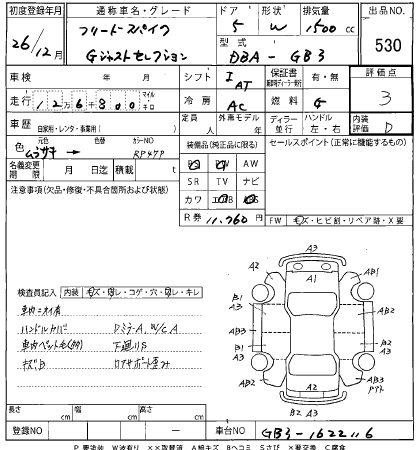 初度登録年月 通称車名・グレード ドア 形状 排気量 出品NO.
26/12月 フリードスパイク 5 W 1500cc 530
Gジャストセレクション 型式 DBA-GB3
車検 年 月 シフト IAT 保証書 有・無 評価点
走行 126800 マイル キロ 冷房 AC 燃料 G 3
車歴 自家用・レンタ・事業用( ) 定員 外装モデル ディーラー 並行 ハンドル 左・右 内装評価 D
色 元色 色替 カラーNO RP47P 装備品(純正品に限る) セールスポイント(正常に機能するもの)
名義変更期限 月 日迄 積載 t PS PW AW
注意事項(欠品・修復・不具合箇所および状態) SR TV ナビ
カワ
R券 11,760円 FW キズ・ヒビ割・リペア跡・X要
A3
A2 A1 AB1
B1 A3 B1
AB3 AB2
B1 A3 B2 A3
A2 AB3
A2
B2 A3
検査員記入 内装 キズ・汚レ・コゲ・穴・ヌレ・キレ
車内ニオイ有
ハンドルカバー DミラーA、W/C A
車内ペット毛(多) 下廻りS
キズB
長さ cm 幅 cm 高さ cm
登録NO - 車台NO GB3-1622116
P要塗装 W波有り ××取替済 A線キズ Bヘコミ Sさび ×要交換 C腐食